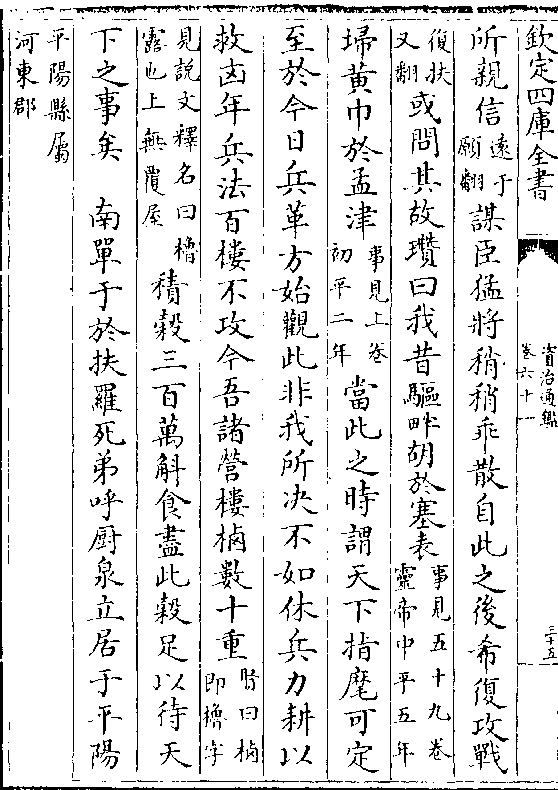 欽定四庫全書
資治通鑑
卷六十一
三十五
所親信遠于願翻謀臣猛將稍稍乖散自此之後希復攻戰
復扶又翻或問其故瓚曰我昔驅畔胡於塞表事見五十九卷靈帝中平五年
埽黃巾於孟津事見上卷初平二年當此之時謂天下指麾可定
至於今日兵革方始觀此非我所決不如休兵力耕以
救凶年兵法百樓不攻今吾諸營樓楯數十重賢曰楯即櫓字
見說文釋名曰櫓露也上無覆屋積穀三百萬斛食盡此穀足以待天
下之事矣　南單于於扶羅死弟呼廚泉立居于平陽
平陽縣屬河東郡